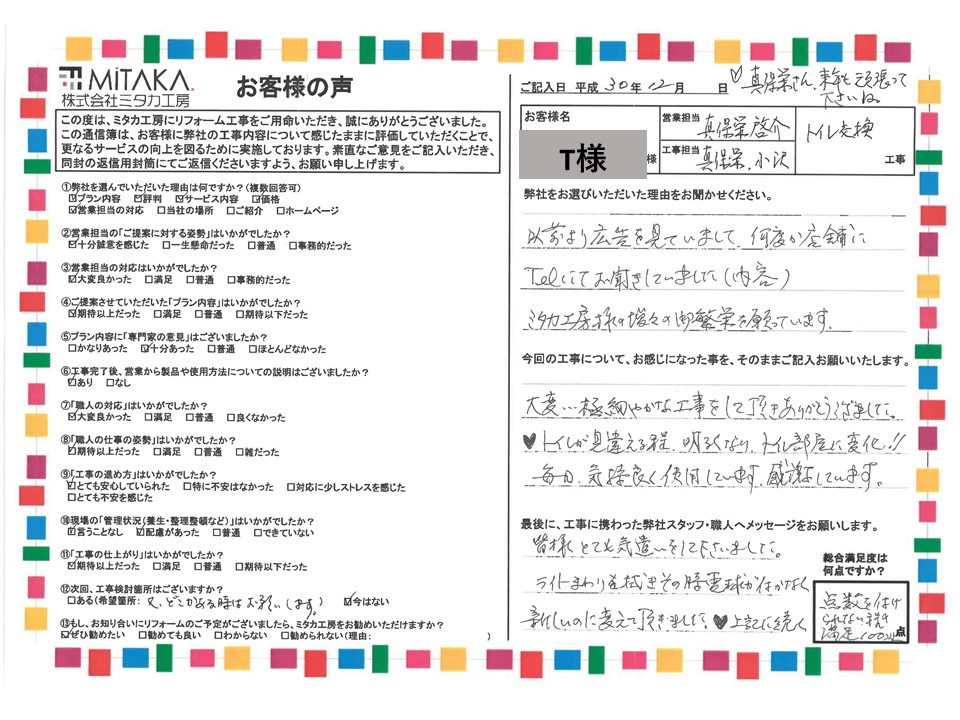 MiTAKA
株式会社ミタカ工房
お客様の声
この度は、ミタカ工房にリフォーム工事をご用命いただき、誠にありがとうございました。
この通信簿は、お客様に弊社の工事内容について感じたままに評価していただくことで、
更なるサービスの向上を図るために実施しております。素直なご意見をご記入いただき、
同封の返信用封筒にてご返信くださいますよう、お願い申し上げます。
①弊社を選んでいただいた理由は何ですか？（複数回答可）
☑プラン内容 ☑評判 ☑サービス内容 ☑価格
☑営業担当の対応 □当社の場所 □ご紹介 □ホームページ
②営業担当の「ご提案に対する姿勢」はいかがでしたか？
☑十分誠意を感じた □一生懸命だった □普通 □事務的だった
③営業担当の対応はいかがでしたか？
☑大変良かった □満足 □普通 □事務的だった
④ご提案させていただいた「プラン内容」はいかがでしたか？
☑期待以上だった □満足 □普通 □期待以下だった
⑤プラン内容に「専門家の意見」はございましたか？
□かなりあった ☑十分あった □普通 □ほとんどなかった
⑥工事完了後、営業から製品や使用方法についての説明はございましたか？
☑あり □なし
⑦「職人の対応」はいかがでしたか？
☑大変良かった □満足 □普通 □良くなかった
⑧「職人の仕事の姿勢」はいかがでしたか？
☑期待以上だった □満足 □普通 □雑だった
⑨「工事の進め方」はいかがでしたか？
☑とても安心していられた □特に不安はなかった □対応に少しストレスを感じた
□とても不安を感じた
⑩現場の「管理状況（養生・整理整頓など）」はいかがでしたか？
☑言うことなし ☑配慮があった □普通 □できていない
⑪「工事の仕上がり」はいかがでしたか？
☑期待以上だった □満足 □普通 □期待以下だった
⑫次回、工事検討箇所はございますか？
□ある（希望箇所：又、どこかある時はお願いします） ☑今はない
⑬もし、お知り合いにリフォームのご予定がございましたら、ミタカ工房をお勧めいただけますか？
☑ぜひ勧めたい □勧めても良い □わからない □勧められない（理由： ）
ご記入日 平成 30年 12月 日
♡真保栄さん、来年も頑張って
下さいね。
お客様名
T様
様
営業担当 真保栄啓介
工事担当 真保栄、小沢
トイレ交換
工事
弊社をお選びいただいた理由をお聞かせください。
以前より広告を見ていまして、何度か店舗に
Telにてお聞きしていました（内容）
ミタカ工房様の増々の御繁栄を願っています。
今回の工事について、お感じになった事を、そのままご記入お願いいたします。
大変…極細やかな工事をして頂きありがとうございました。
♥トイレが見違える程、明るくなり、トイレ部屋に変化!!
毎日、気持良く使用しています。感謝しています。
最後に、工事に携わった弊社スタッフ・職人へメッセージをお願いします。
皆様とても気遣いをして下さいました。
ライトまわりを拭きその時電球がつかなく
新しいのに変えて頂きました、♥上記に続く
総合満足度は
何点ですか？
点数を付け
られない程
満足100以上
点